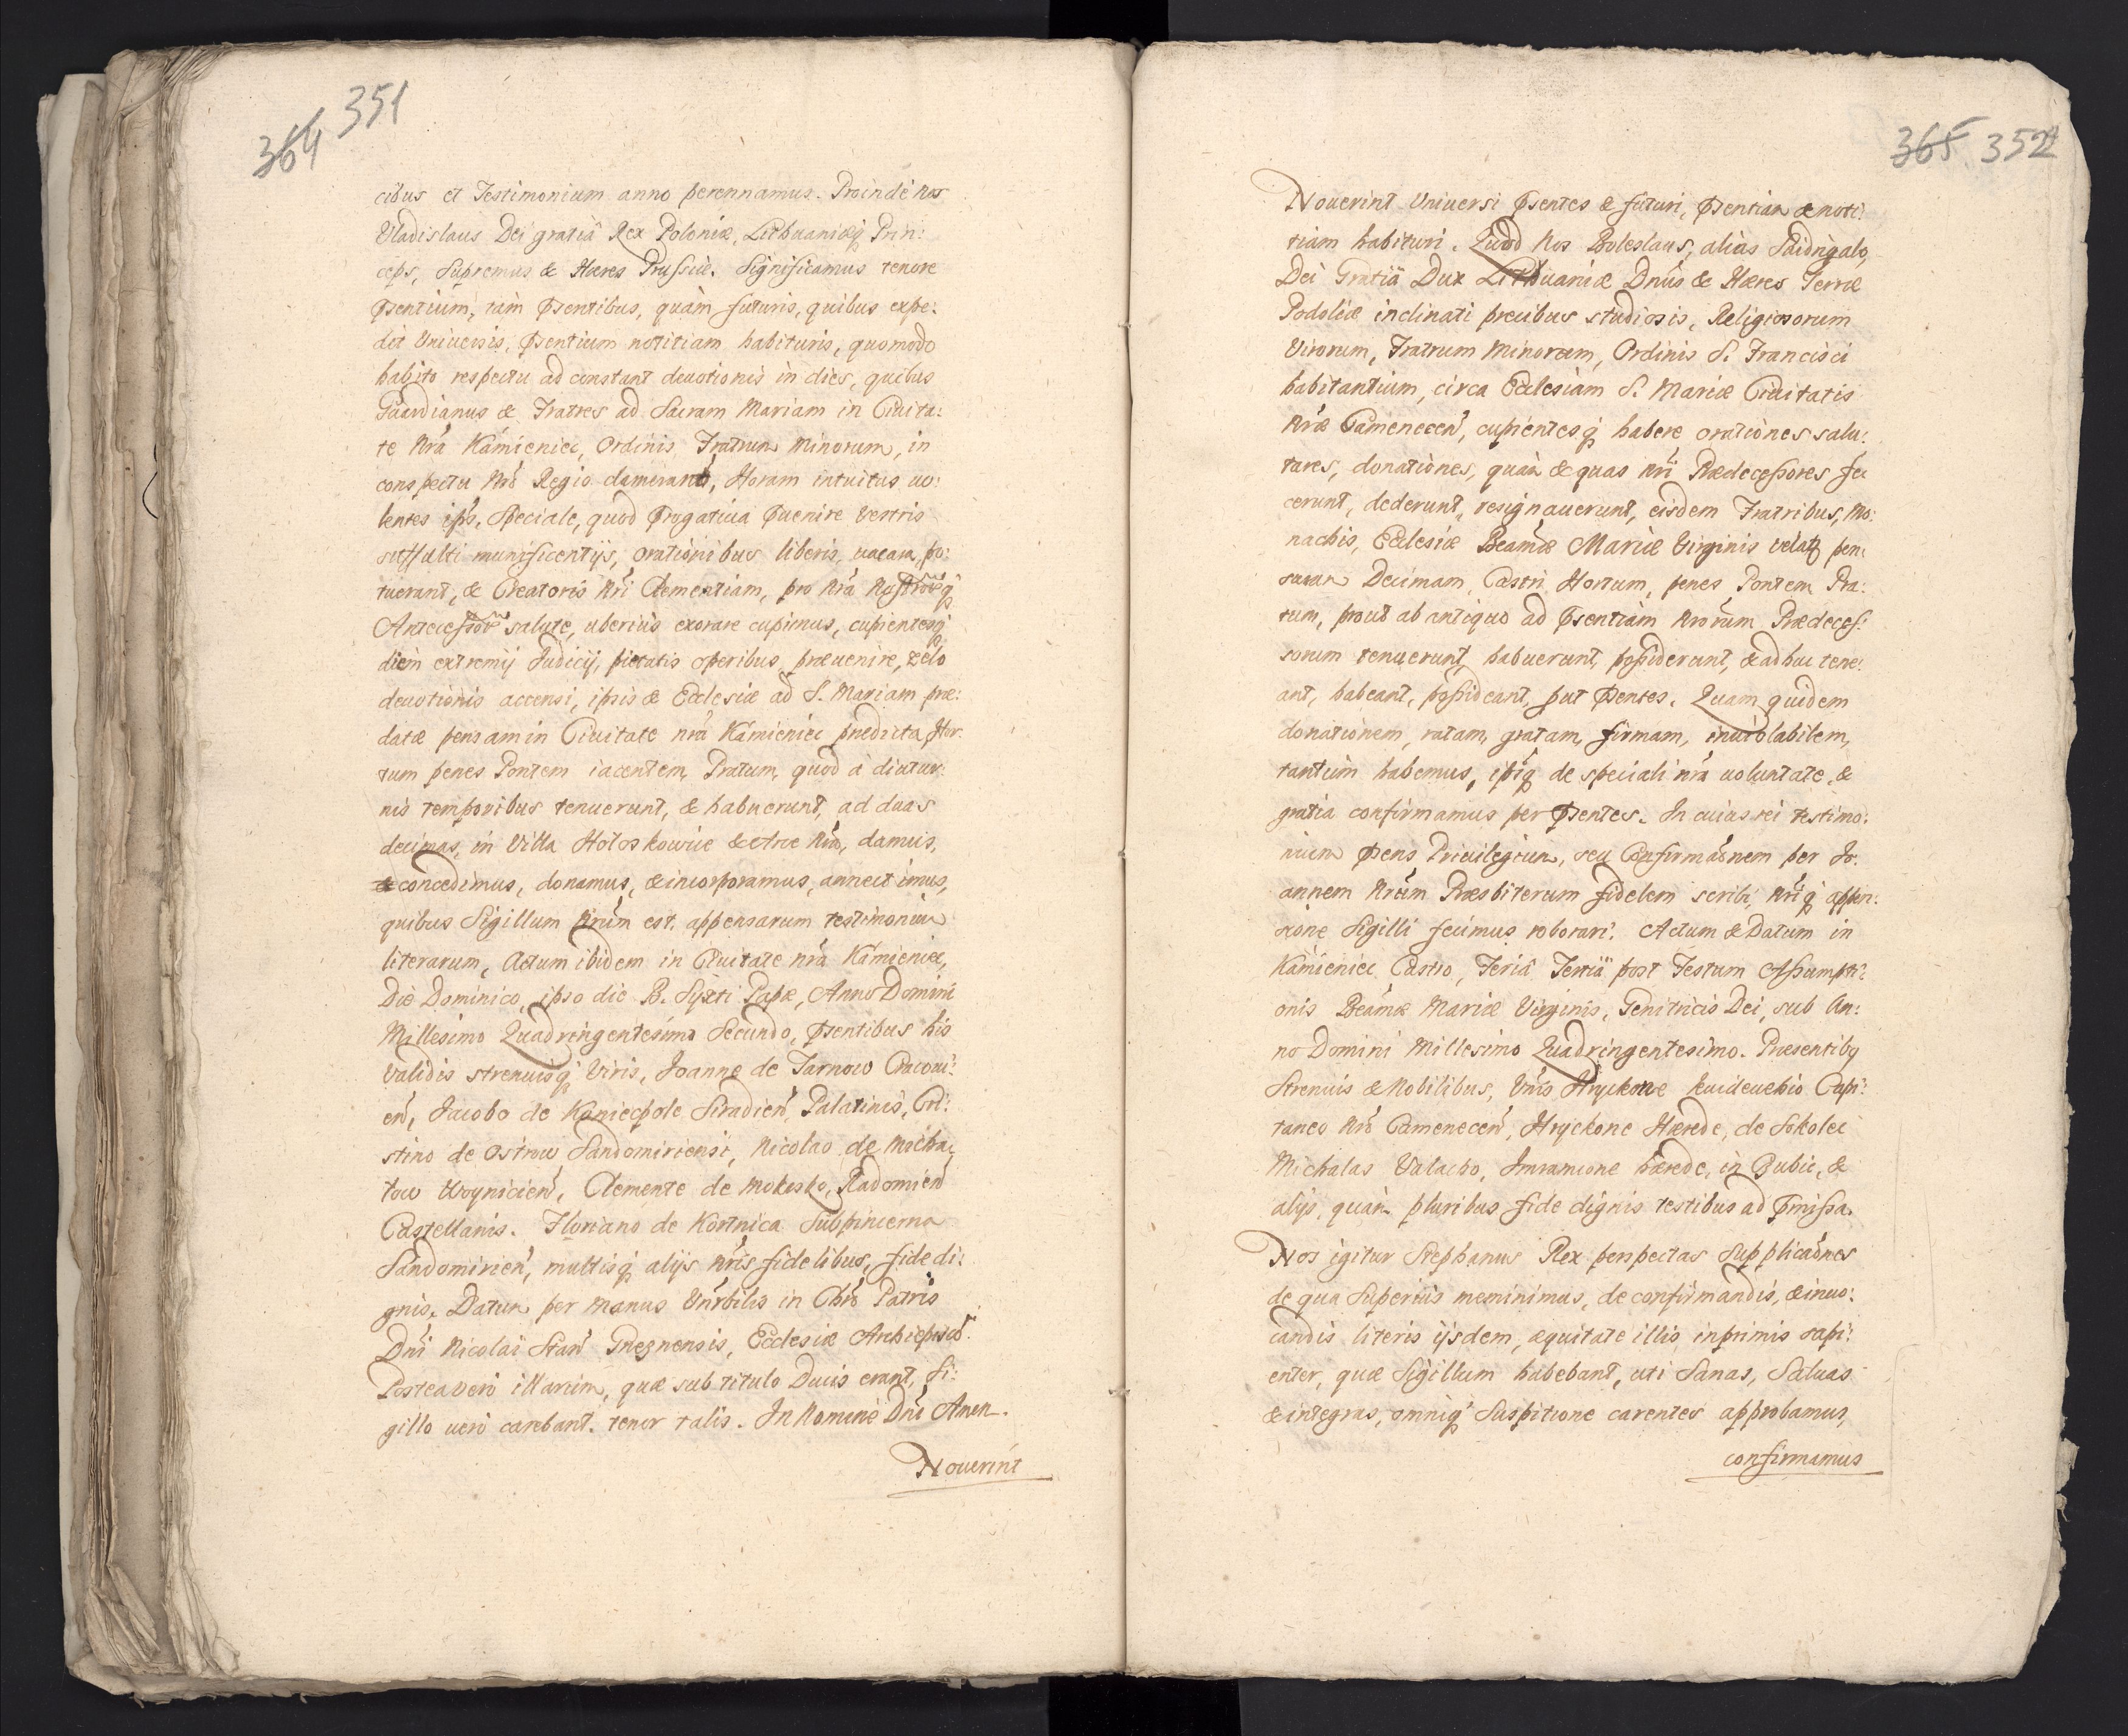 364 351
cibus et Testimonium anno perennamus. Proinde nos
Vladislaus Dei gratiâ Rex Poloniæ, Lithuaniæq́ Prin:
ceps, Supremus & Hæres Prussiæ. Significamus tenore
Pŝentium, tàm Pŝentibus, quàm futuris, quibus expe:
dit Vniuersis, Pŝentium notitiam habituris, quomodo
habito respectu ad constant deuotionis in dies, quibus
Guardianus & Fratres ad Sacram Mariam in Ciuita:
te Nrâ Kamieniec, Ordinis Fratrum Minorum, in
conspectu Nrô Regio clamerant, Horam intuitus uo:
lentes ipŝ, Speciale, quod Prŏgatiua Pŭenire Vestris
suffulti munificentijs, orationibus liberis, uacare, po:
tuerant, & Creatoris Nrî Clementiam, pro Nrâ Nostrorq́
Antecessor salute, uberiùs exorare cupimus, cupientesq́
diem extremij Judicij, pietatis operibus præuenire, zelo
deuotionis accensi, ipsis & Ecclesiæ ad S. Mariam præ:
datæ pensam in Ciuitate nrâ Kamieniec prædicta, Hor:
tum penes Pontem iacentem, Pratum, quod à diutur:
nis temporibus tenuerunt, & habuerunt, ad duas
decimas, in Villa Holoskowice damus,
& concedimus, donamus, & incorporamus, annectimus,
quibus Sigillum Nrûm est. appensarum testimonium
literarum, Actum ibidem in Ciuitate nrâ Kamieniec,
Die Dominico, ipso die B. Sixti Papæ, Anno Domini
Millesimo Quadringentesimo Secundo, Pŝentibus his
Validis strenuisq́ Viris, Joanne de Tarnow Cracoui:
eñ, Jacobo de Koniecpole Siradieñ, Palatinis, Cri:
stino de Ostrow Sandomiriensi, Nicolao de Micha:
low Woynicieñ, Clemente de Mokrsko, Radomieñ
Castellanis. Floriano de Kortnica Subpincerna
Sandomirieñ, multisq́ alijs Nrîs fidelibus, fide di:
gnis. Datum per manus Vnŕbilis in Chrô Patris
Dnî Nicolai Stañ Gneznensis, Ecclesiæ Archiepiscô.
Postea verò illarum, quæ sub titulo Ducis erant, Si:
gillo uerò carebant. tenor talis. In Nomine Dnî Amen.
Nouerint
365 352
Nouerint Vniuersi Pŝentes & futuri, Pŝentiam & noti:
tiam habituri. Quod Nos Boleslaus, aliàs Suidrigalo,
Dei Gratiâ Dux Lithuaniæ Dnûs & Hæres Terræ
Podoliæ inclinati precibus studiosis, Religiosorum
Virorum, Fratrum Minorum, Ordinis S. Francisci
habitantium, circa Ecclesiam S. Mariæ Ciuitatis
Nrâ Cameneceñ, cupientesq́ habere orationes salu:
tares, donationes, quàm & quas Nrî Prædecessores fe
cerunt, dederunt, resignauerunt, eisdem Fratribus, Mo:
nachis, Ecclesiæ Beamæ Mariæ Virginis pen:
suram Decimam, Castri Hortum, penes Pontem Pra:
tum, prout ab antiquo ad Pŝentiàm Nrorûm Prædeces:
sorum tenuerunt, habuerunt, possiderunt, & ad huc tene:
ant, habeant, possideant, put Pŝentes. Quam quidem
donationem, ratam, gratam, firmam, inuiolabilem,
tantùm habemus, ipîq́ de speciali nrâ uoluntate, &
gratia confirmamus per Pŝentes. In cuius rei testimo:
nium Pŝens Priuilegium, seu Confirmaônem per Jo:
annem Nrûm Præsbiterum fidelem scribi, Nriq́ appen:
sione Sigilli fecimus roborari. Actum & Datum in
Kamieniec Castro, Feriâ Tertiâ post Festum Assumpti:
onis Beamæ Mariæ Virginis, Genitricis Dei, sub An:
no Domini Millesimo Quadringentesimo. Præsentibq
Strenuis & Nobilibus, Viris Hryckone Capi:
taneo Nrô Cameneceñ, Hryckone Hærede, de Sokolec
Michalas Valacho, Imramone hærede, in Bubic, &
alijs, quàm pluribus fide dignis testibus ad Pŕmissa.
Nos igitur Stephanus Rex perspectas Supplicaônes
de qua Superiùs meminimus, de confirmandis, & inuo:
candis literis ijsdem, æquitate illis inprimis sapi:
enter, quæ Sigillum habebant, uti Sanas, Saluas
& integras, omniq́ Suspitione carentes approbamus,
confirmamus